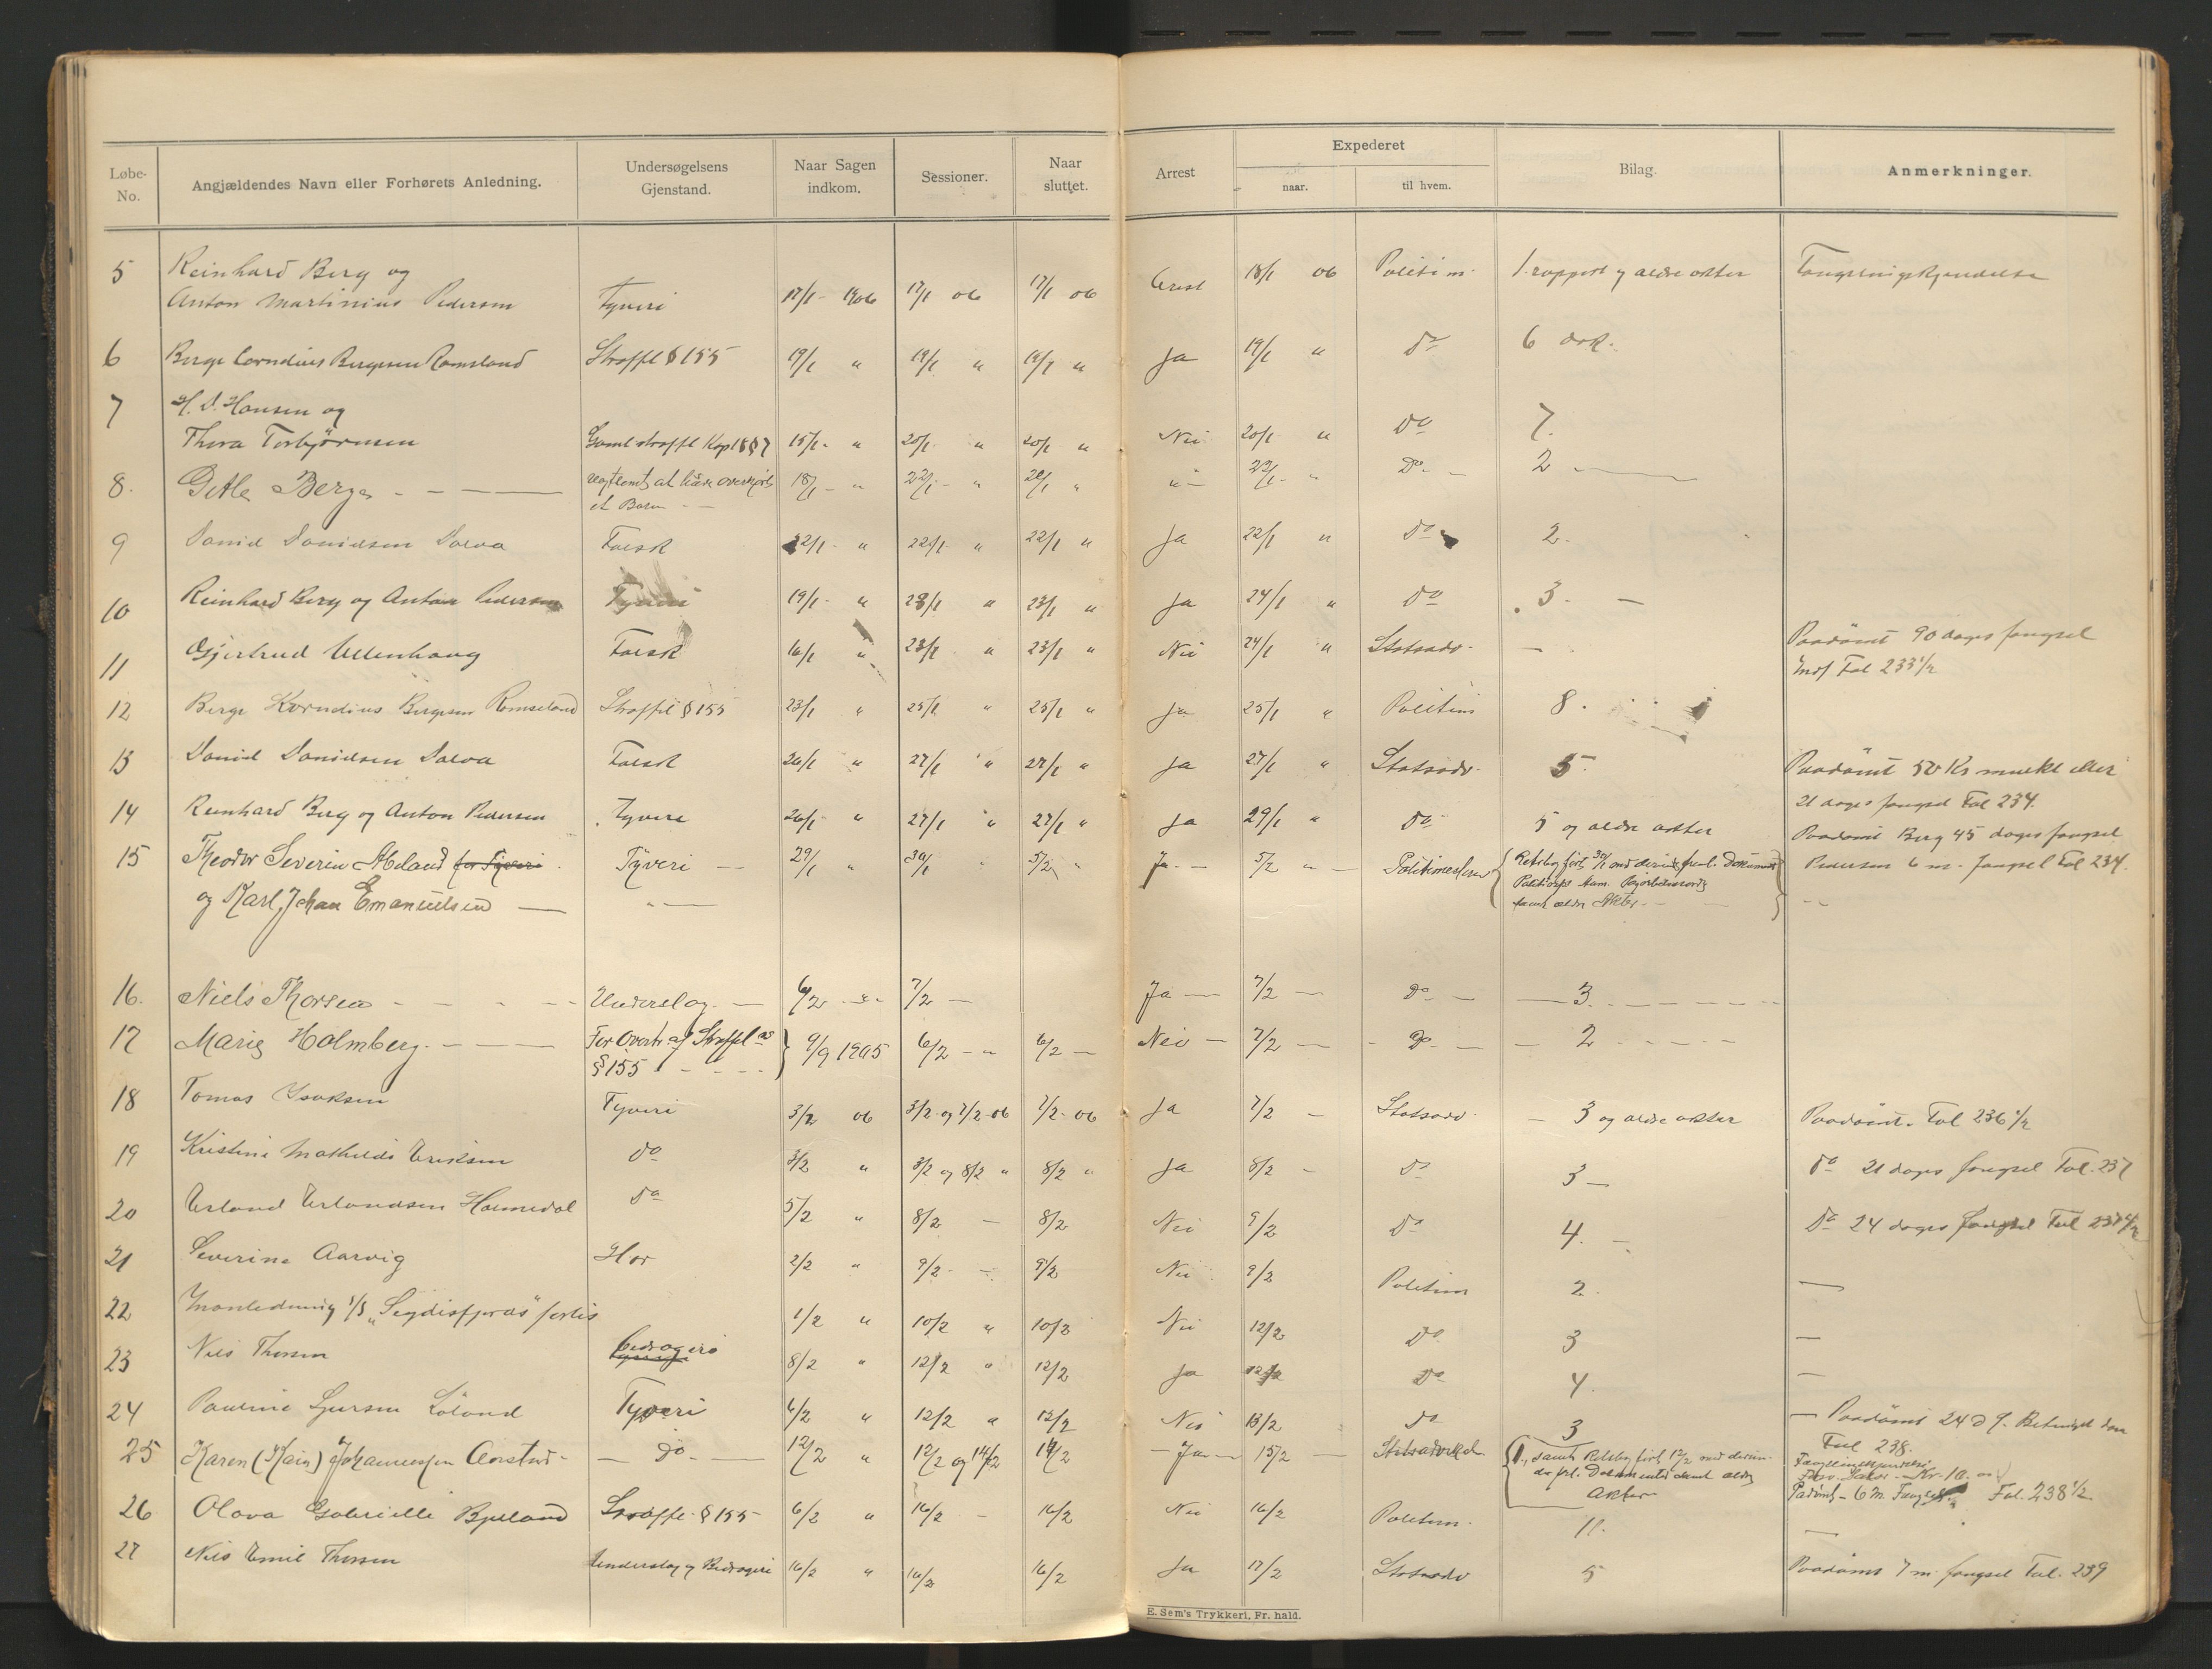 Løbe-No. Angjældendes Navn eller Forhørets Anledning. Undersøgelsens Gjenstand. Naar Sagen indkom. Sessioner. Naar sluttet. Arrest Expederet naar. til hvem. Bilag. Anmerkninger.
5 Reinhard Berg og
Anton Martinius Pedersen Tyveri 17/1 1906 17/1 06 17/1 06 Arest 18/1 06 Politim. 1 rapport og ældre akter Fængslingskjendelse
6 Berge Cornelius Bergesen Romsland Straffel § 155 19/1 " 19/1 " 19/1 " Ja 19/1 " Do 6 dok.
7 H. D. Hansen og
Thora Torbjörnsen Gaml straffl Kap 18 § 7 15/1 " 20/1 " 20/1 " Nei 20/1 " Do 7.
8. Ditle Berge 18/1 - " 22/1 - " " - 22/1 - " Do - 2
et Barn
9 Danid Danielsen Salva Falsk 22/1 - " 22/1 - " 22/1 " Ja 22/1 " Do 2.
10 Reinhard Berg og Anton Pedersen Tyveri 19/1 - " 23/1 " 23/1 " Ja 24/1 " Do 3. -
11 Gjertrud Ullenhaug Falsk 16/1 " 23/1 " 23/1 " Nei 24/1 " Statsadv. - Paadömt 90 dages fængsel
Fol 233 1/2
12 Berge Kornelius Bergesen Romsland Straffel § 155 23/1 " 25/1 " 25/1 " Ja 25/1 " Politim 8.
13 Danid Danielsen Salva Falsk 26/1 " 27/1 " 27/1 " Ja 27/1 " Statsadv. 5. Paadömt 50 Kr mulkt eller
21 dages fængsel Fol 234.
14 Reinhard Berg og Anton Pedersen Tyveri 26/1 " 27/1 " 27/1 " Ja 29/1 " Do 5 og ældre akter Paadömt Berg 45 dages fængsel
15 Theodor Severin Meland for Tyveri Tyveri - 29/1 " 30/1 5/2 Ja - 5/2 " - Politimesteren Pedersen 6 m. fængsel Fol 234.
og Karl Johan Emanuelsen - " - samt ældre Akter
16. Niels Thorsen Underslag. - 6/2 - " - 7/2 - Ja - 7/2 - Do - 3.
17 Marie Holmberg. - For Overtr. af Straffel
§ 155 9/9 1905 6/2 - " 6/2 - Nei - 7/2 - Do. - 2
18 Tomas Isaksen Tyveri 3/2 06 3/2 og 7/2 06 7/2 - 06 Ja 7/2 - Statsadv. - 3 og ældre akter Paadömt. Fol 236 1/2
19 Kristine Mathilde Eriksen do 3/2 " 3/2 og 8/2 " 8/2 " Ja 8/2 - Do 3 - Do 21 dages fængsel Fol. 237
20 Erland Erlandsen Homedal Do 5/2 " 8/2 - 8/2 Nei 9/2 Do 4. - Do 24 dages fængsel Fol 237 1/2
21 Severine Aarvig Hor 2/2 " 9/2 - 9/2 Nei 9/2 Politim 2. -
22 I anledning S/S "Seydisfjords" forlis 1/2 " 10/2 " 10/2 Nei 12/2 Do 3 -
23 Nils Thorsen Bedrageri 8/2 " 12/2 " 12/2 Ja 12/2 Do 4. -
24 Pauline Sjursen Söland Tyveri 6/2 " 12/2 " 12/2 Nei 13/2 Do 3 - Paadömt 24 d f. Betinget dom
Fol 238.
25 Karen (Kain) Johannessen Aarstad - - do - 12/2 " 12/2 og 14/2 14/2 - Ja - 15/2 - Statsadvokaten Dokumenter samt ældre
Akter Padömt - 6 M. Fængsel Fol. 238 1/2
26 Olava Gabrielle Bjelland Straffe. § 155 6/2 " 16/2 - 16/2 Nei 16/2 Politim. 11. -
27 Nils Emil Thorsen Underslag og Bedrageri 16/2 " 16/2 16/2 Ja 17/2 Statsadv 5 Paadömt 7 m. fængsel Fol. 239
E. Sem's Trykkeri, Fr. hald.